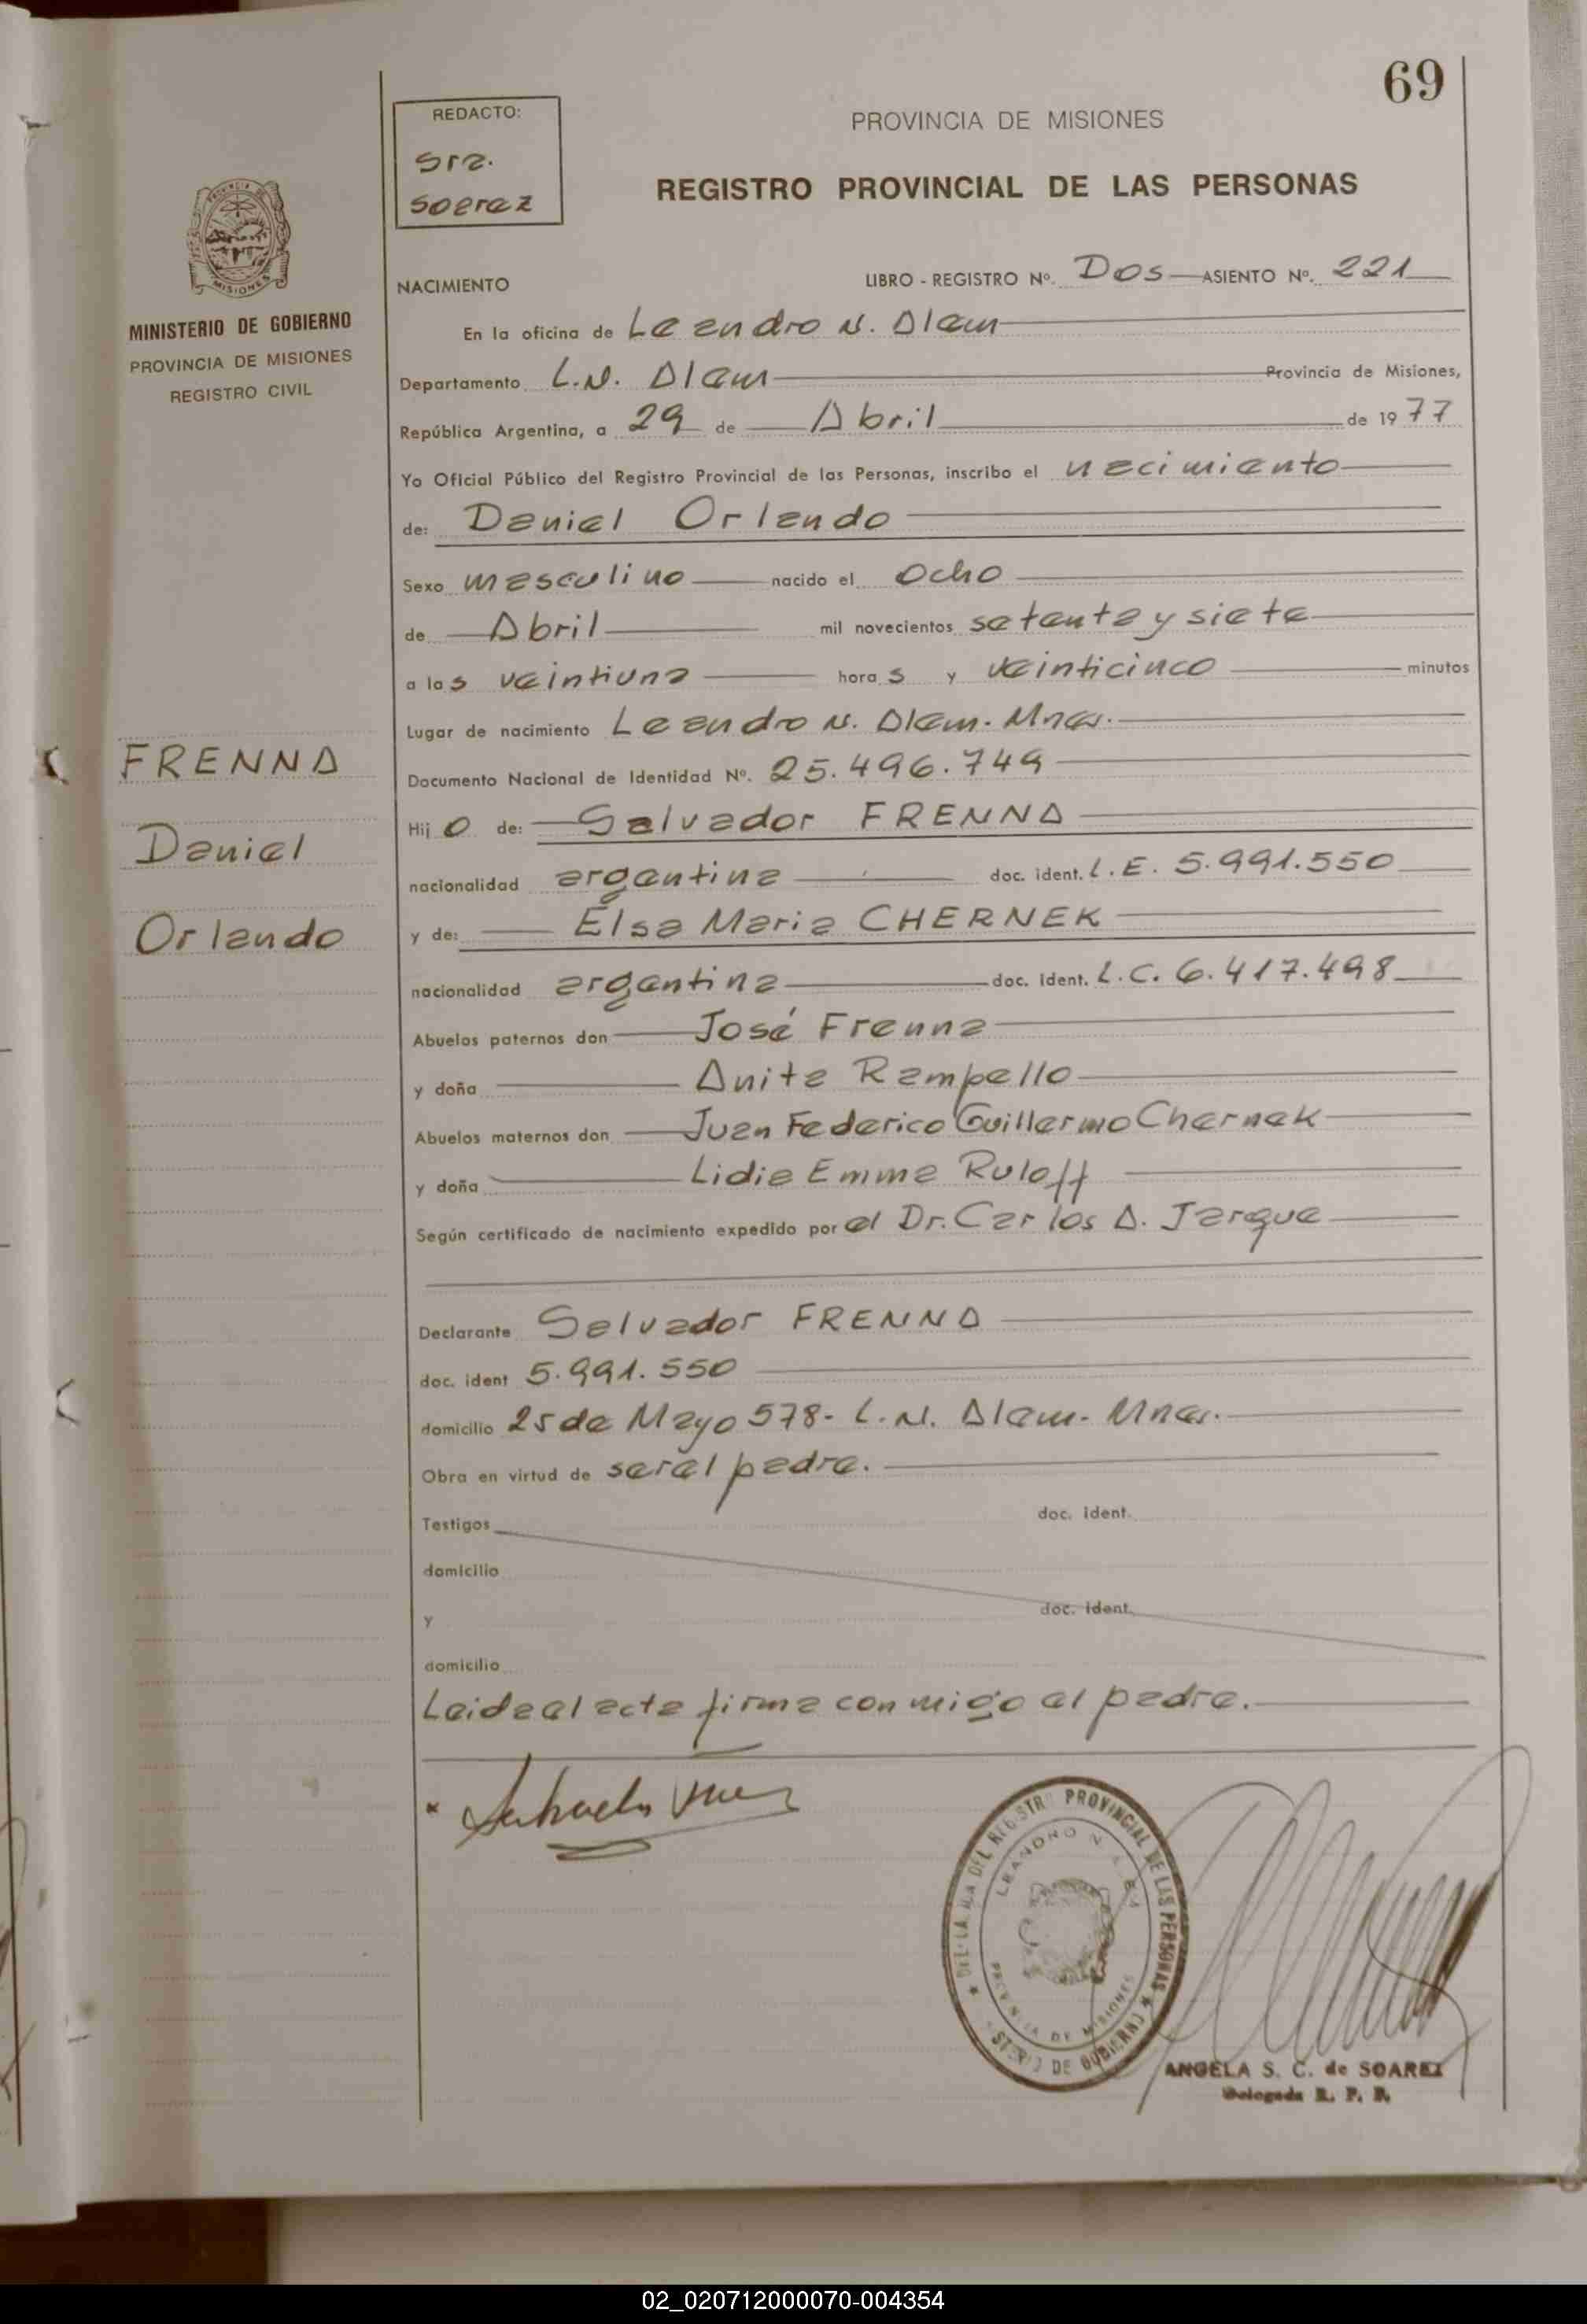 69
REDACTO:
Sra.
Soarez
PROVINCIA DE MISIONES
REGISTRO PROVINCIAL DE LAS PERSONAS
MISIONES
MINISTERIO DE GOBIERNO
PROVINCIA DE MISIONES
REGISTRO CIVIL
NACIMIENTO LIBRO - REGISTRO Nº. Dos ASIENTO Nº. 221
En la oficina de Leandro N. Alem
Departamento L.N. Alem Provincia de Misiones,
República Argentina, a 29 de Abril de 1977
Yo Oficial Público del Registro Provincial de las Personas, inscribo el nacimiento
de: Daniel Orlando
Sexo masculino nacido el Ocho
de Abril mil novecientos setenta y siete
a las veintiuna horas y veinticinco minutos
Lugar de nacimiento Leandro N. Alem. Mnes.
Documento Nacional de Identidad Nº. 25.496.749
Hijo de: Salvador FRENNA
nacionalidad argentina doc. ident. L.E. 5.991.550
y de: Elsa Maria CHERNEK
nacionalidad argentina doc. ident. L.C. 6.417.498
Abuelos paternos don José Frenna
y doña Anita Rampello
Abuelos maternos don Juan Federico Guillermo Chernek
y doña Lidia Emma Ruloff
Según certificado de nacimiento expedido por el Dr. Carlos A. Jarque
Declarante Salvador FRENNA
doc. ident 5.991.550
domicilio 25 de Mayo 578- L.N. Alem- Mnes.
Obra en virtud de ser el padre.
Testigos doc. ident.
domicilio
y doc. ident.
domicilio
Leida el acta firma conmigo el padre.
FRENNA
Daniel
Orlando
PROVINCIAL DE LAS PERSONAS
LEANDRO N.
PROVINCIA DE MISIONES
DE GOBIERNO
ANGELA S. C. de SOAREZ
Delegada R. P. P.
02_020712000070-004354